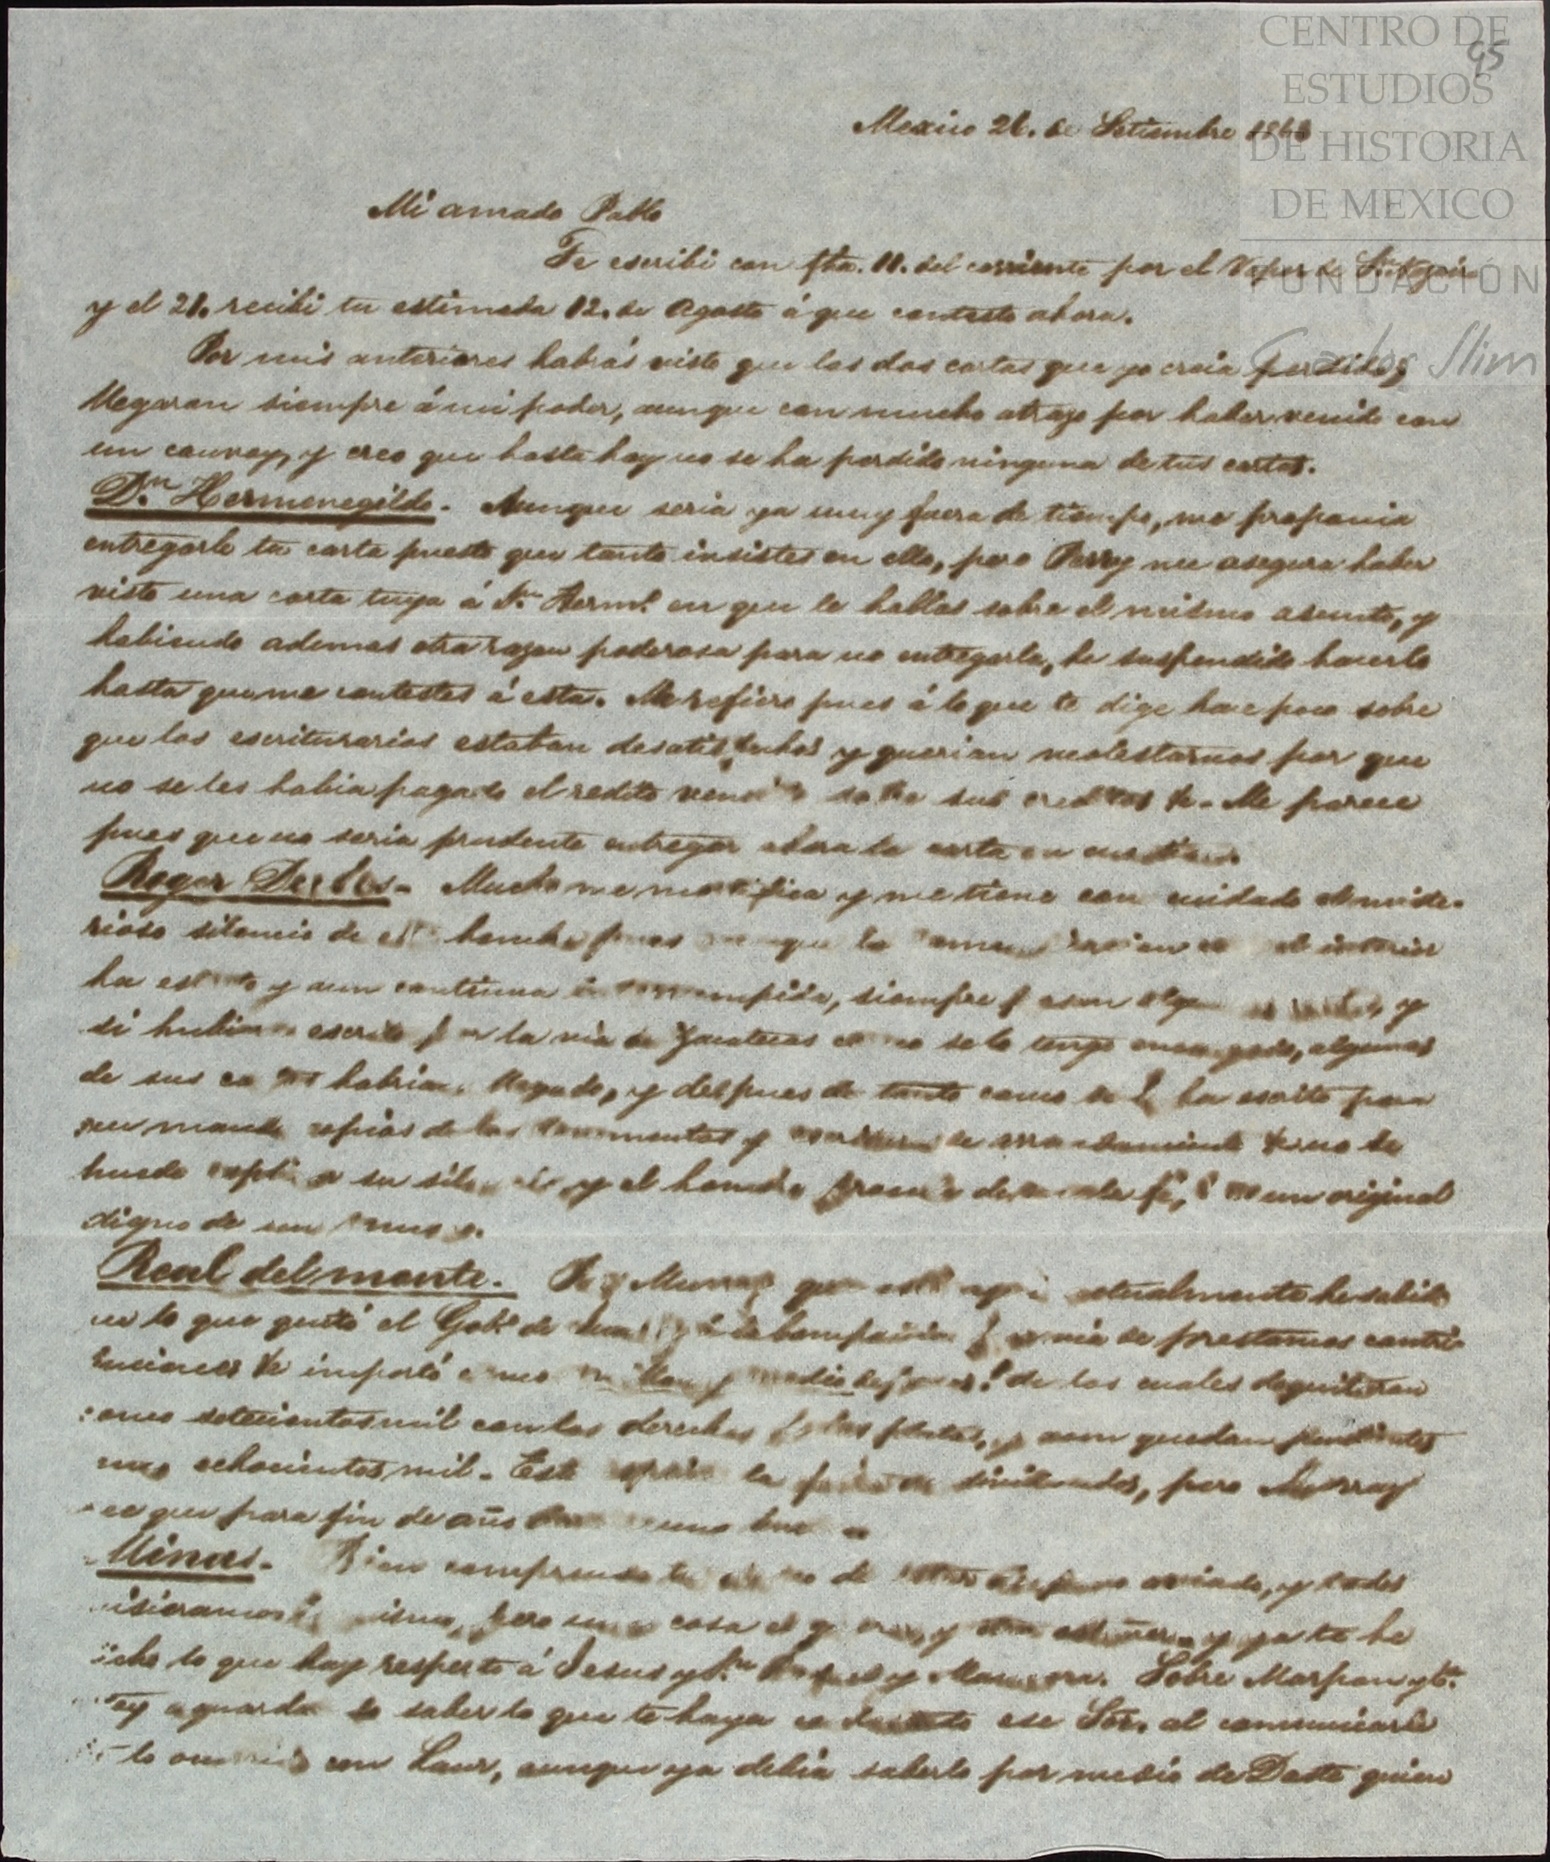 CENTRO DE
ESTUDIOS
DE HISTORIA
DE MEXICO
FUNDACIÓN
Carlos Slim
95
Mexico 26. de Setiembre
Mi amado Pablo
Te escribi con fha. 11. del corriente por el Vapor de
y el 21. recibi tu estimada 12. de Agosto á que contesto ahora.
Por mis anteriores habrás visto que las dos cartas que yo creia perdidas
llegaron siempre á mi poder, aunque con mucho atrazo por haber venido con
un convoy, y creo que hasta hoy no se ha perdido ninguna de tus cartas.
D.n Hermenegildo. Aunque seria ya muy fuera de tiempo, me proponia
entregarle tu carta puesto que tanto insistes en ello, pero Perry me asegura haber
visto una carta tuya á D.n Herm.o en que le hablas sobre el mismo asunto, y
habiendo ademas otra razon poderosa para no entregarla, he suspendido hacerlo
hasta que me contestes á esta. Me refiero pues á lo que te dige hace poco sobre
que los escriturarios estaban desatisfechos y querian molestarnos por que
no se les habia pagado el redito vencido sobre sus creditos &. Me parece
pues que no seria prudente entregar ahora la carta en cuestion.
Roger Dubos. Mucho me mortifica y me tiene con cuidado el miste-
rioso silencio de este hombre pues aunque la comunicacion con el interior
ha estado y aun continua interrumpida, siempre pasan y
si hubiera escrito por la via de Zacatecas como se lo tengo encargado, algunas
de sus cartas habrian llegado, y despues de tanto como se le ha escrito para
que mande copias de los documentos y escritura de arrendamiento &. no se
puede esplicar su silencio y el hombre de mala fé, ó es un original
digno de un museo.
Real del monte. Por Murray que está aqui actualmente he sabido
que lo que quitó el Gob.o de á la Compañia por via de prestamos contri-
buciones &. importó como millon y medio de pesos! de los cuales desquitaron
como setecientos mil con los derechos de las platas, y aun quedan pendientes
unos ochocientos mil. Esto la de dividendos, pero Murray
cree que para fin de año uno
Minas. Bien comprendo tu de y todos
quisieramos lo mismo, pero una cosa es querer, y otra es y ya te he
dicho lo que hay respecto á Jesus y S.n y Sobre Marfan y C.a
estoy aguardando saber lo que te haya contestado ese Sor. al comunicarle
lo ocurrido con Laur, aunque ya debia saberlo por medio de Daste quien